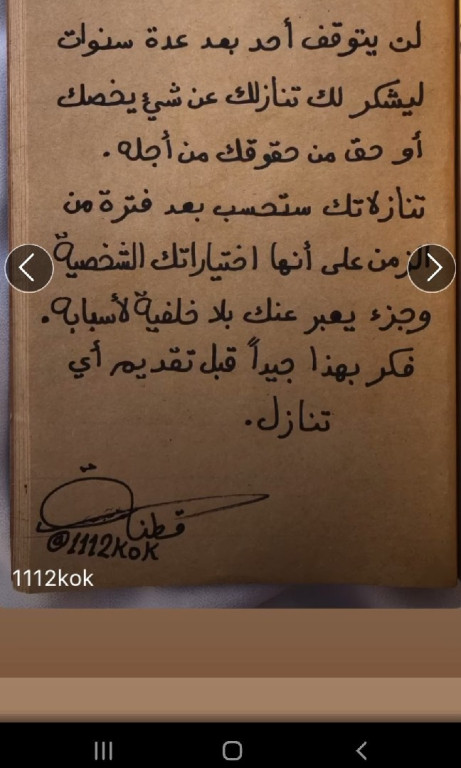 لن يتوقف أحد بعد عدة سنوات
ليشكر لك تنازلك عن شيء يخصك
أو حق من حقوقك من أجله .
تنازلاتك ستحسب بعد فترة من
الزمن على أنها اختياراتك الشخصية
وجزء يعبر عنك بلا خلفية لأسبابه .
فكر بهذا جيداً قبل تقديم أي
تنازل .
قطنة
@1112kok
1112kok